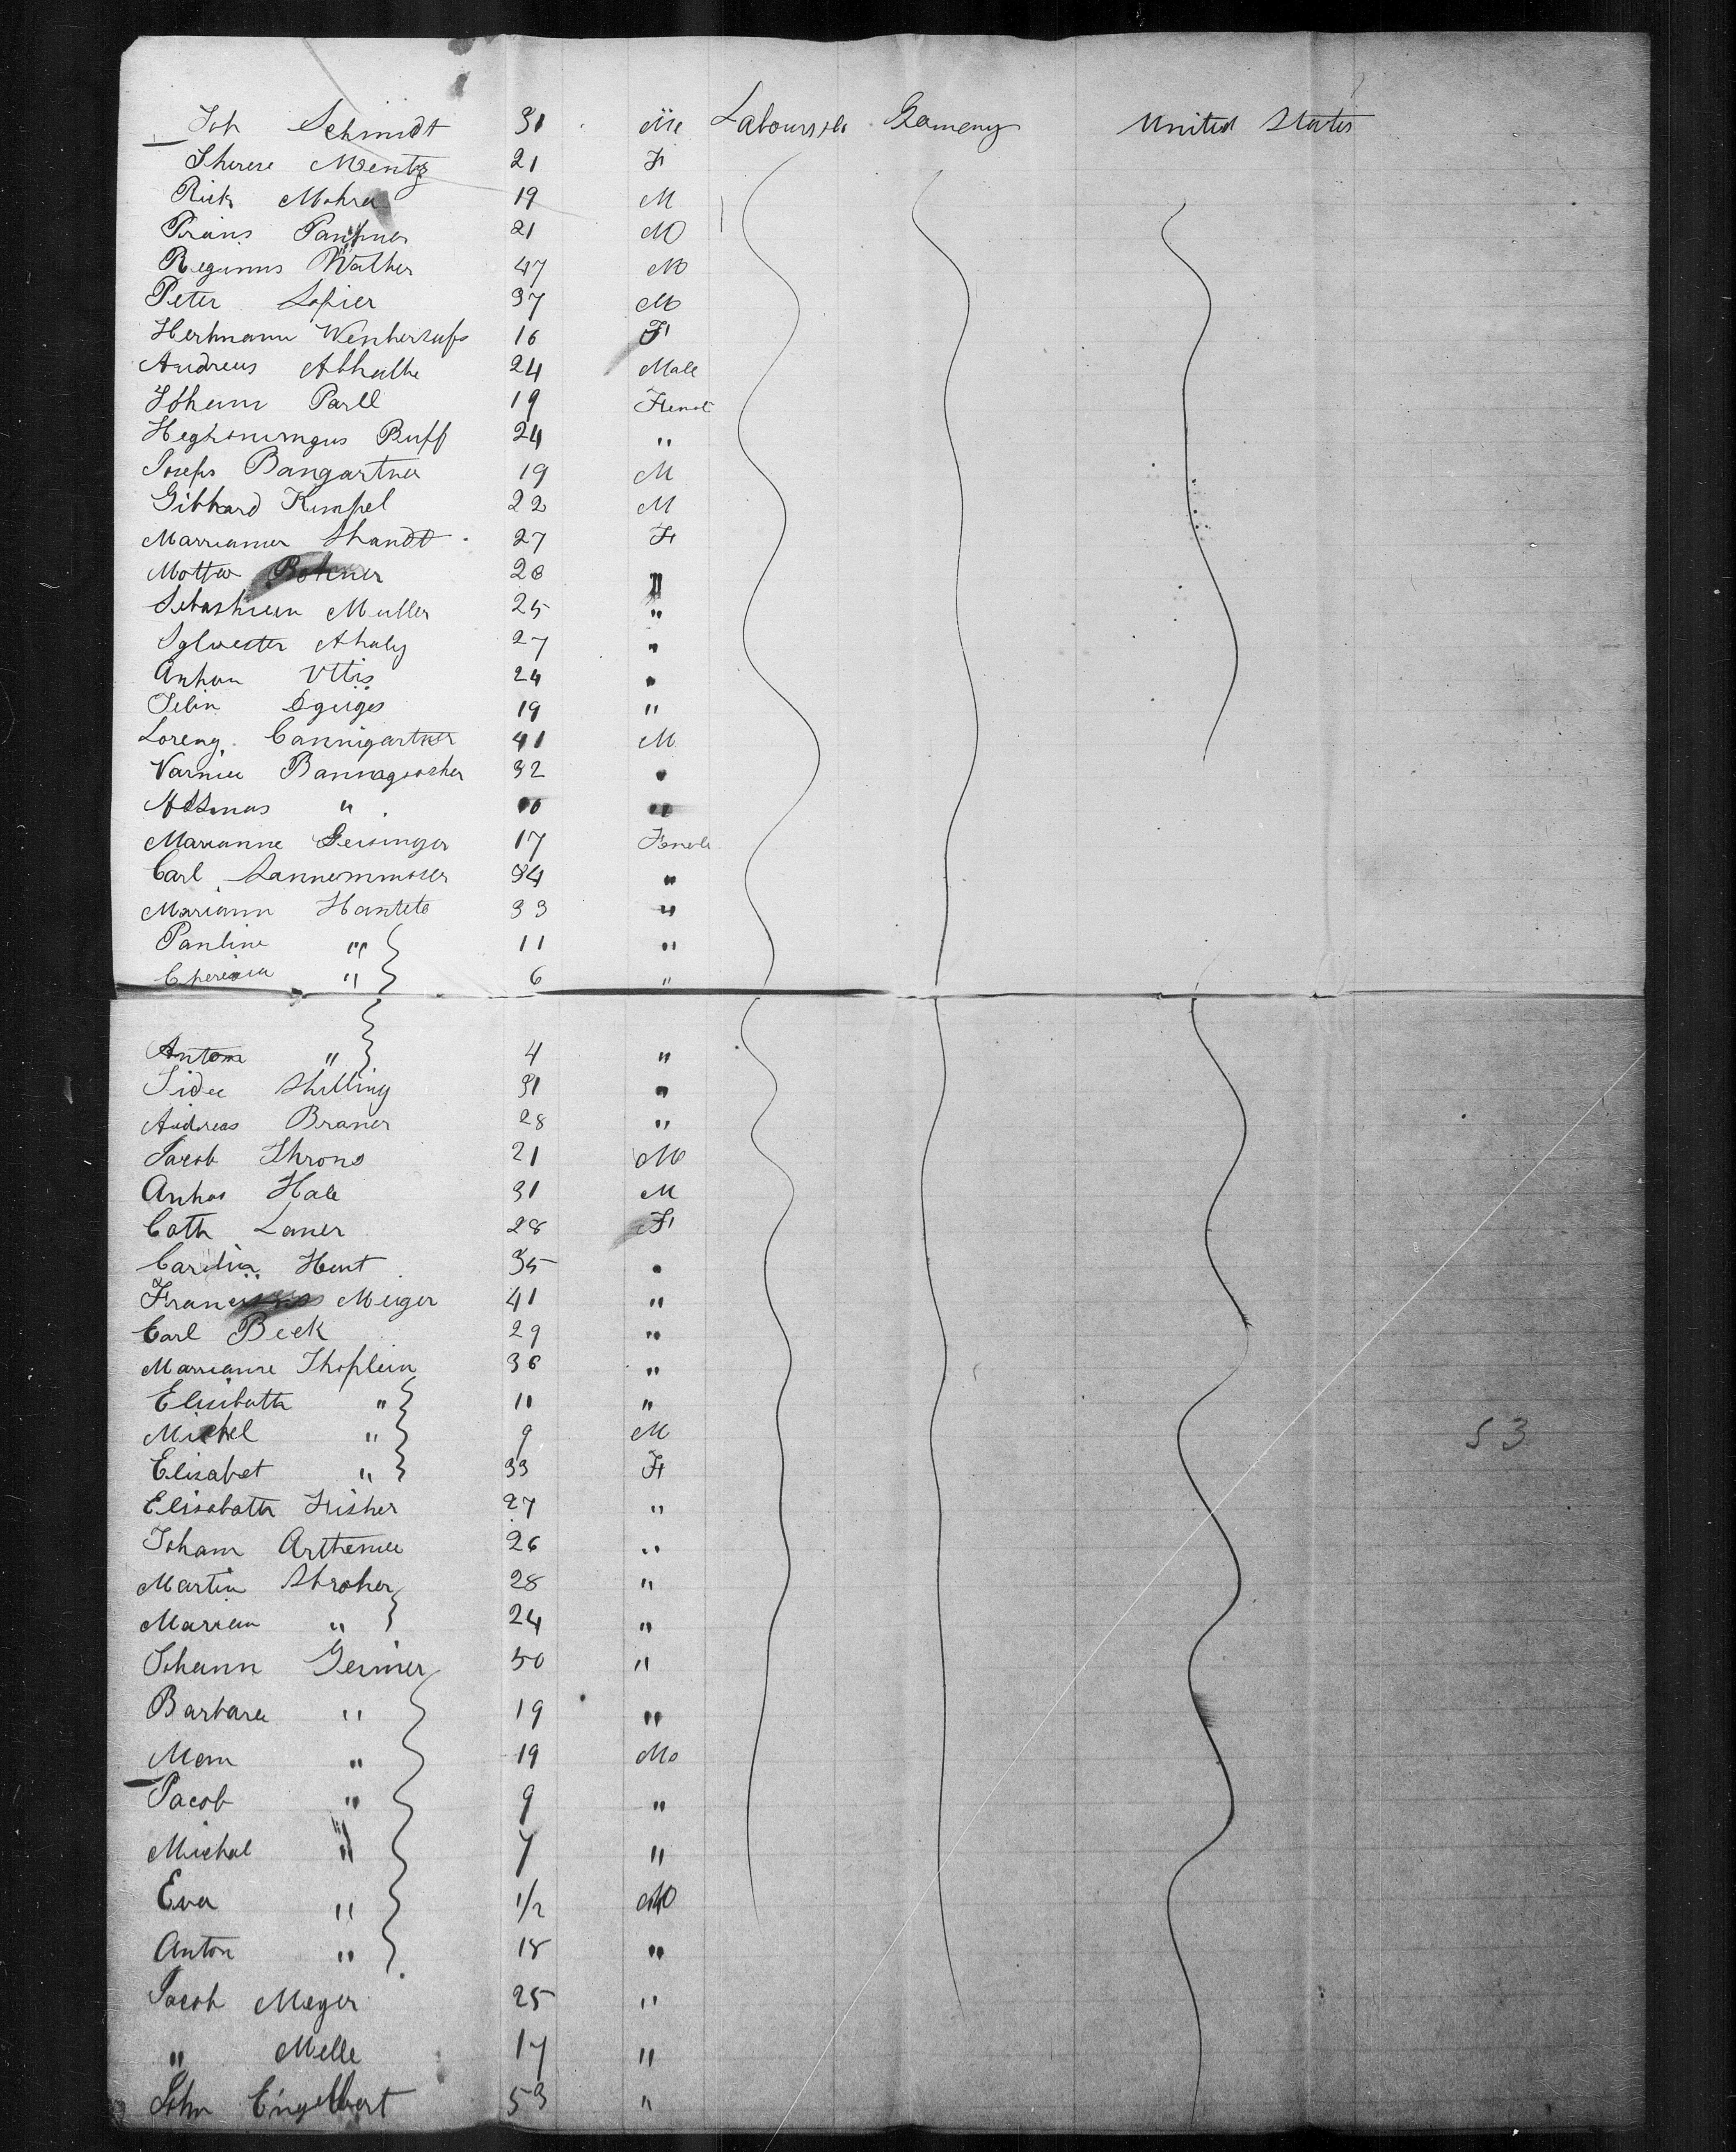 Joh Schmidt 31 Me Labourers Germeny United States
Therese Mentz 21 F
Rick Mohra 19 M
Prans 21 M
Regunus Wather 47 M
Peter Lofier 37 M
Herhmann 16 F
Andreus Abhathe 24 Male
Johann Parll 19
Ruff 24 "
Josefs Bangartner 19 M
Gibhard Kimpel 22 M
Marrianner Shandt 27 F
Bohner 28 "
Sebastiean Muller 25 "
Sylvester Ahaly 27 "
Anhon Uttis 24 "
19 "
Loreng Cannigartner 41 M
Varnie 32 "
" "
Marianne Geisinger 17
Carl Lannemmoser 34 "
Mariann Hantete 33 "
Pauline " 11 "
" 6 "
Antone " 4 "
Sidee Shilling 31 "
Andreas Braner 28 "
Jacob Throns 21 M
Anhos Hale 31 M
Cath Laner 28 F
Carolin Hunt 35 "
Meiger 41 "
Carl Beek 29 "
Marrianne Thoplein 36 "
Elisibatth " 11 "
Michel " 9 M
53
Elisabet " 33 F
Elisabatth Fisher 27 "
Joham Arthemee 26 "
Martin Shroher 28 "
Mariean " 24 "
Johann Germer 50 "
Barbara " 19 "
" 19 M
Jacob " 9 "
Michal " 7 "
Eva " 1/2 M
Anton " 18 "
Jacob Meyer 25 "
" Melle 17 "
John Engelbert 53 "